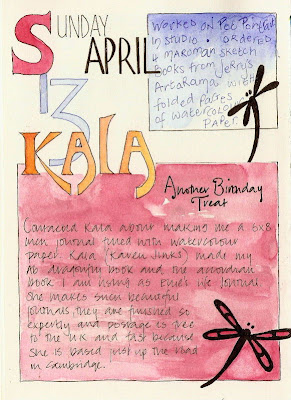 SUNDAY
APRIL
13
WORKED ON PET PORTRAIT
IN STUDIO. ORDERED
MAROMAN SKETCH
BOOKS FROM JERRYS
ARTARAMA WITH
FOLDED PAGES
OF WATERCOLOUR
PAPER.
KALA
Another Birthday
Treat
Contacted Kala about making me a 6x8
inch journal filled with watercolour
paper. Kala (Karen Jinks) made my
A6 dragonfly book and the accordian
book I am using as Emily's journal.
She makes such beautiful
journals they are finished so
expertly and postage is free
to the UK and fast because
she is based just up the road
in Cambridge.